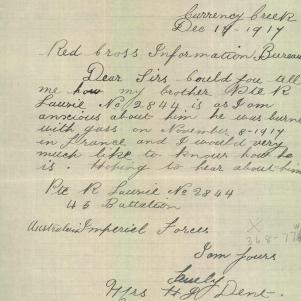 Currency Creek
Dec 19 - 1917
Red Cross Information Bureau
Dear Sirs Could you tell
me how my brother Pte R
Laurie No 2844 is as I am
anxious about him he was burnt
with gass on November 8-1917
in France and I would very
much like to know how he
is hoping to hear about him
Pte R Laurie No 2844
45 Battalion
Australian Imperial Forces
I am yours
Truely
Mrs H Dent.